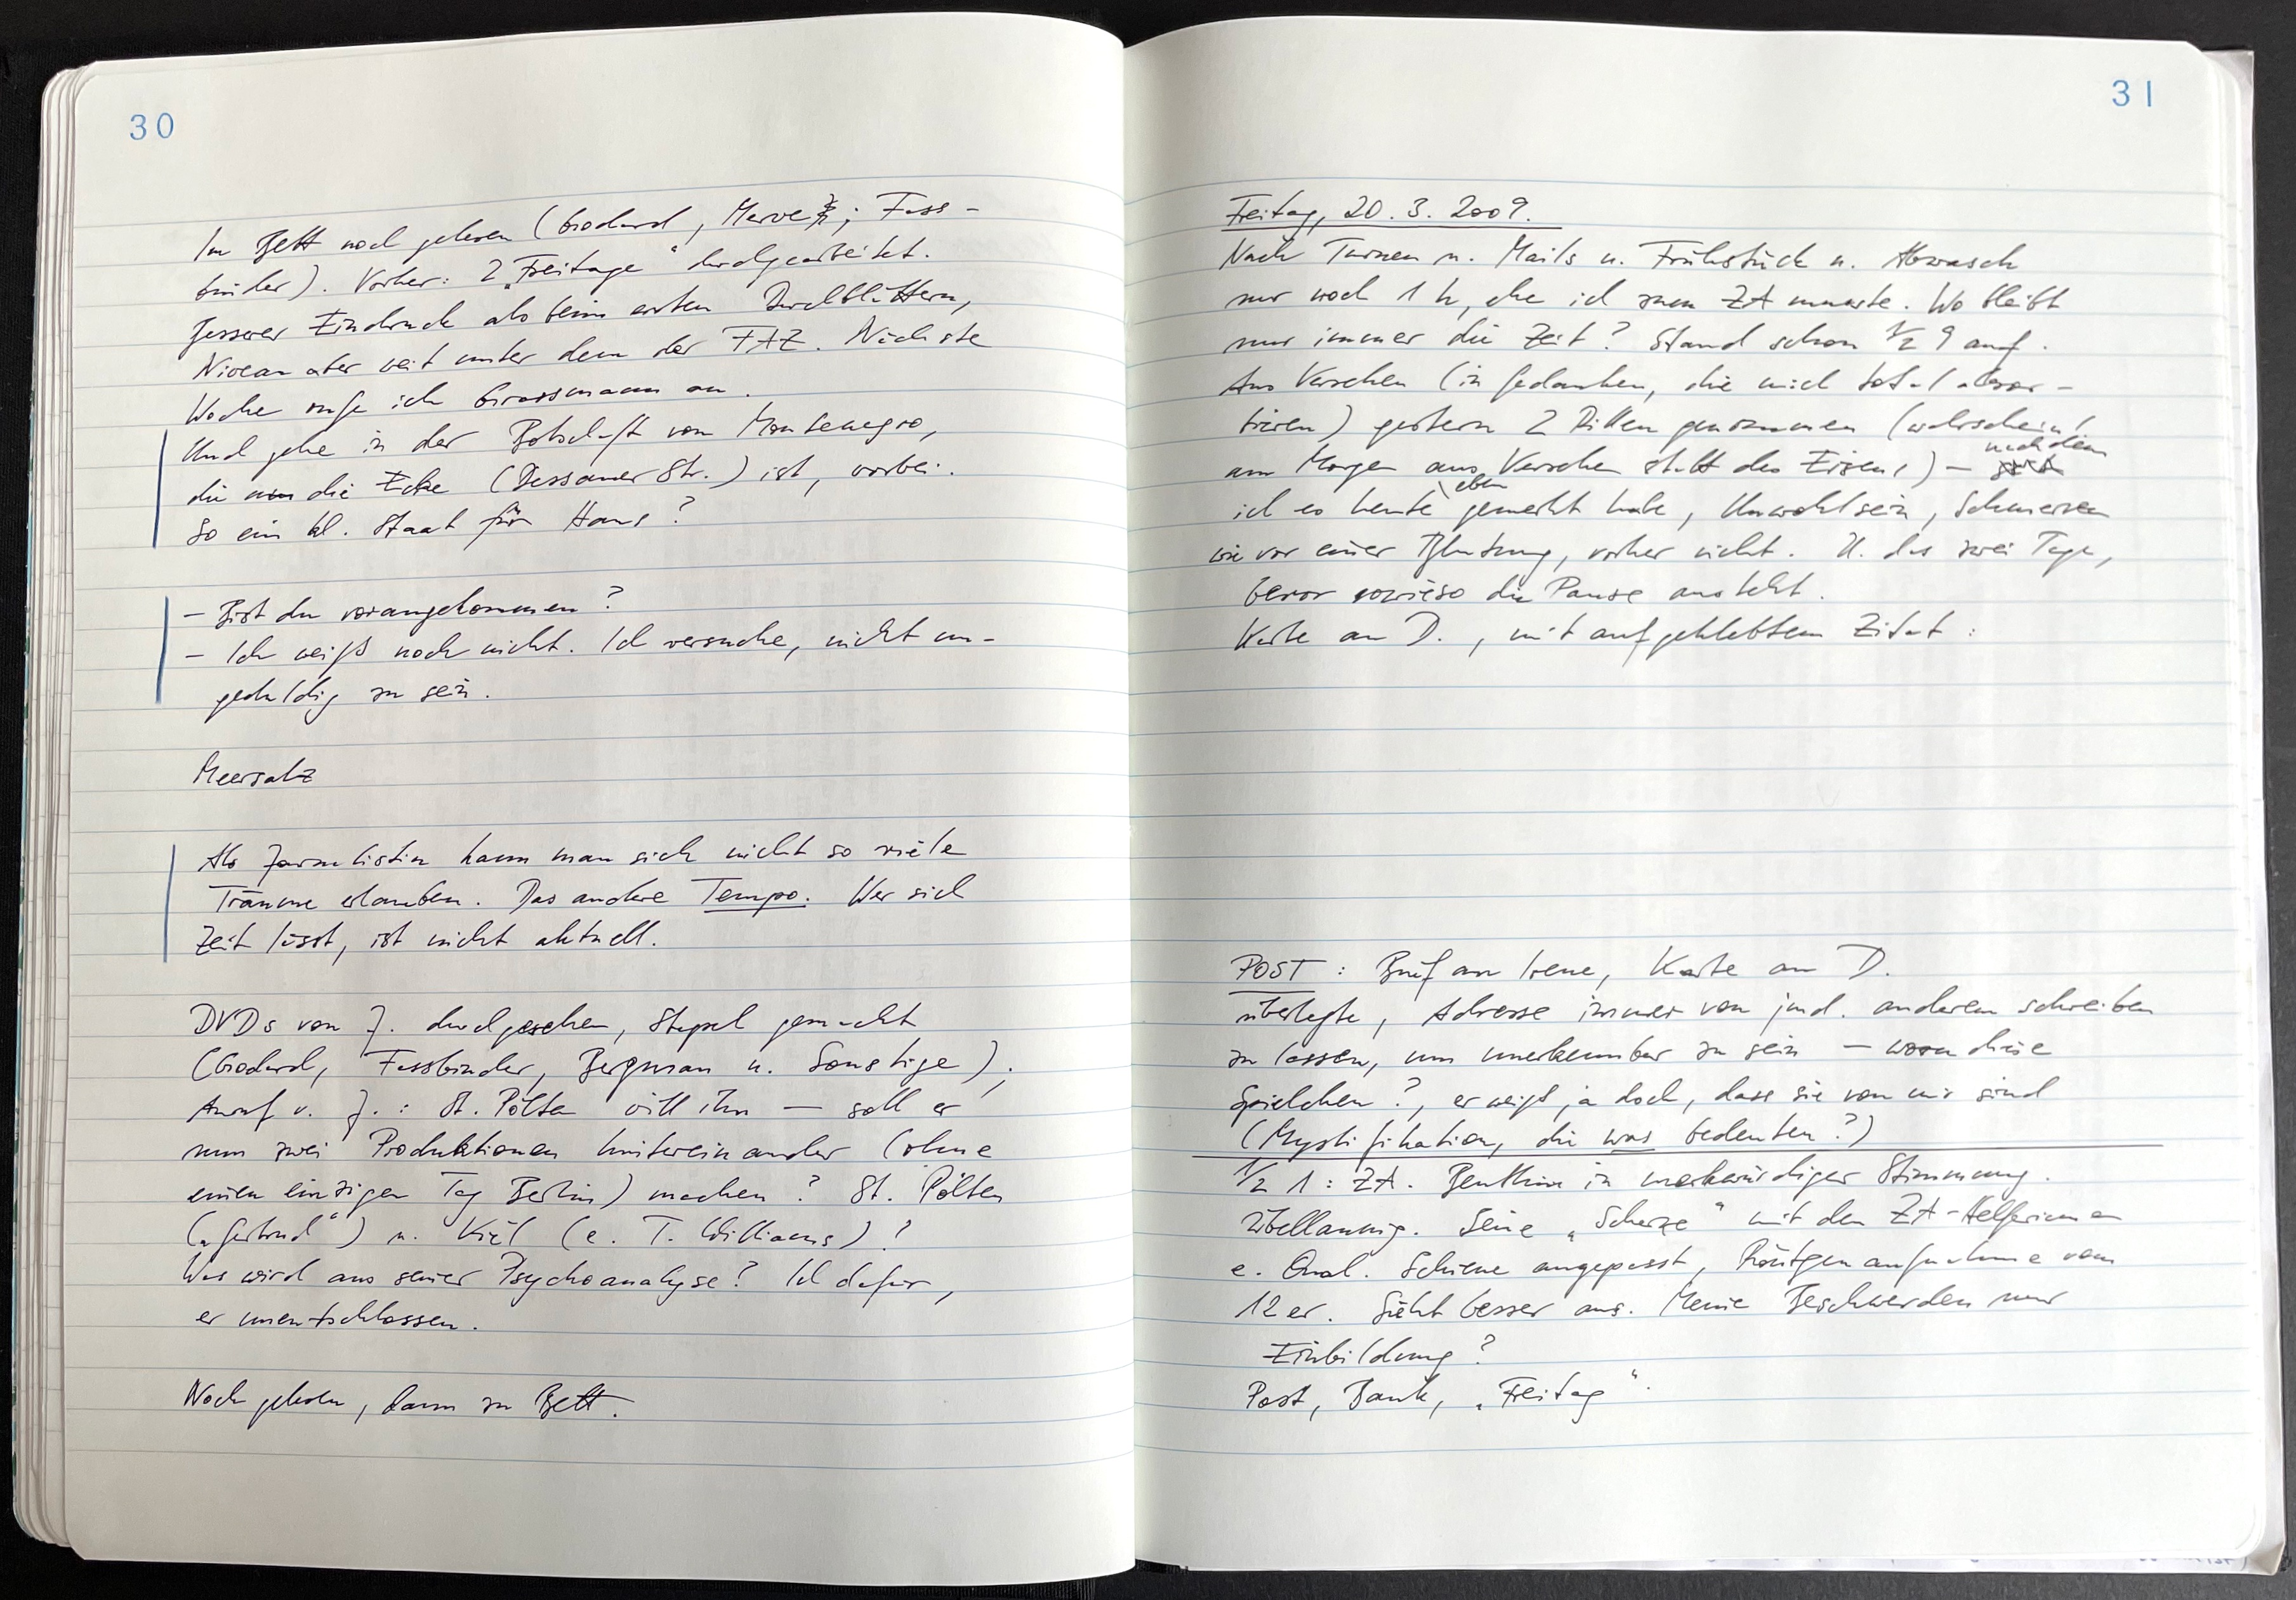 30
Im Bett noch gelesen (Godard, Merve; Fass-
binder). Vorher: 2 „Freitage“ durchgearbeitet.
Besserer Eindruck als beim ersten Durchblättern,
Niveau aber weit unter dem der FAZ. Nächste
Woche rufe ich Grassmann an.
Und gehe in der Botschaft von Montenegro,
die um die Ecke (Dessauer Str.) ist, vorbei.
So ein kl. Staat für Hans?
– Bist du vorangekommen?
– Ich weiß noch nicht. Ich versuche, nicht un-
geduldig zu sein.
Meersalz
Als Journalistin kann man sich nicht so viele
Träume erlauben. Das andere Tempo. Wer sich
Zeit lässt, ist nicht aktuell.
DVDs von J. durchgesehen, Stapel gemacht
(Godard, Fassbinder, Bergman u. Sonstige);
Anruf v. J.: St. Pölten will ihn — soll er
nun zwei Produktionen hintereinander (ohne
einen einzigen Tag Berlin) machen? St. Pölten
(„Gertrud“) u. Kiel (e. T. Williams)?
Was wird aus seiner Psychoanalyse? Ich dafür,
er unentschlossen.
Noch gelesen, dann zu Bett.
31
Freitag, 20.3.2009.
Nach Turnen u. Mails u. Frühstück u. Abwasch
nur noch 1 h, ehe ich zum ZA musste. Wo bleibt
nur immer die Zeit? Stand schon ½ 9 auf.
Aus Versehen (in Gedanken, die mich total absor-
bieren) gestern 2 Pillen genommen (wahrscheinl.
am Morgen aus Versehen statt des Eisens) — nachdem
ich es heute eben gemerkt habe, Unwohlsein, Schmerzen
wie vor einer Blutung, vorher nicht. U. das zwei Tage,
bevor sowieso die Pause ansteht.
Karte an D., mit aufgeklebtem Zitat:
POST: Brief an Irene, Karte an D.
überlegte, Adresse immer von jmd. anderem schreiben
zu lassen, um unerkennbar zu sein — wozu diese
Spielchen?, er weiß ja doch, dass sie von mir sind
(Mystifikation, die was bedeuten?)
½ 1: ZA. Benthin in merkwürdiger Stimmung.
Übellaunig. Seine „Scherze“ mit den ZA-Helferinnen
e. Qual. Schiene angepasst, Röntgenaufnahme vom
12er. Sieht besser aus. Meine Beschwerden nur
Einbildung?
Post, Bank, „Freitag“.